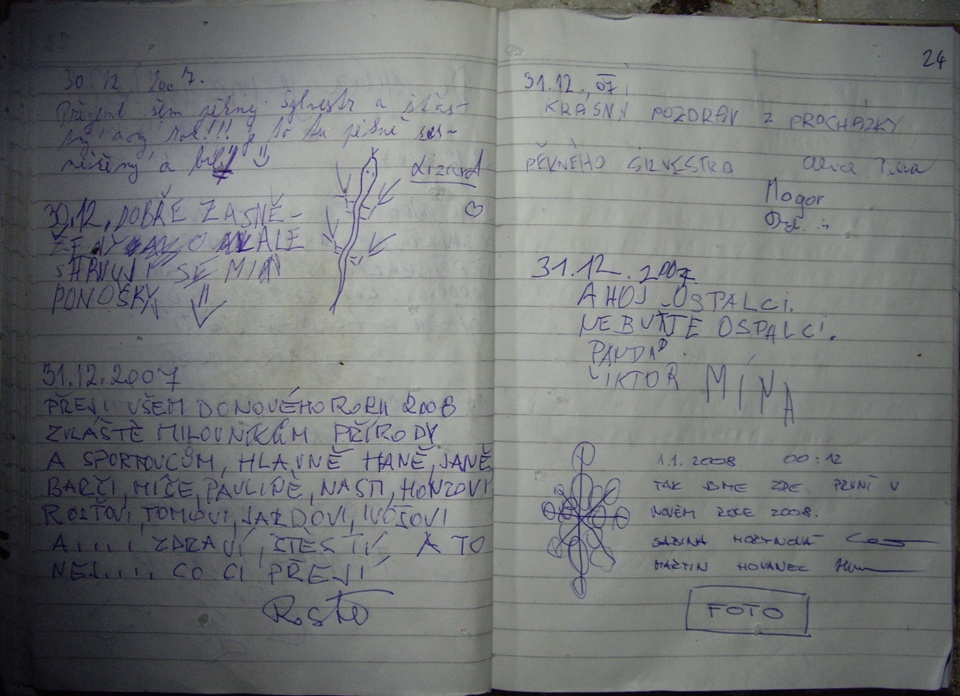 30.12.2007.
Přejeme všem pěkný Sylvestr a
nový rok!!! je to tu pěkně
a
Lizard
30.12. DOBŘE ZASNĚ-
ŽENÝ ALE
SE MI
PONOŽKY
31.12.2007
PŘEJI VŠEM DO NOVÉHO ROKU 2008
ZVLÁŠTĚ MILOVNÍKŮM PŘÍRODY
A SPORTOVCŮM, HLAVNĚ HANĚ, JANĚ
BARČI, MÍČE, PAVLÍNĚ, NASTI, HONZOVI
ROSŤOVI, TOMOVI, JARDOVI, IVOŠOVI
A.... ZDRAVÍ, ŠTĚSTÍ A TO
NEJ.... CO CI PŘEJÍ
Rosťo
24
31.12., 07,
KRÁSNÝ POZDRAV Z PROCHÁZKY
PĚKNÉHO SILVESTRA
Mogor
31.12.2007
AHOJ OSPALCI.
NEBUĎTE OSPALCI.
PANDA
VIKTOR MÍŇA
1.1.2008 00:12
TAK JSME ZDE PRVNÍ V
NOVÉM ROCE 2008.
SABINA
MARTIN HOVANEC
FOTO